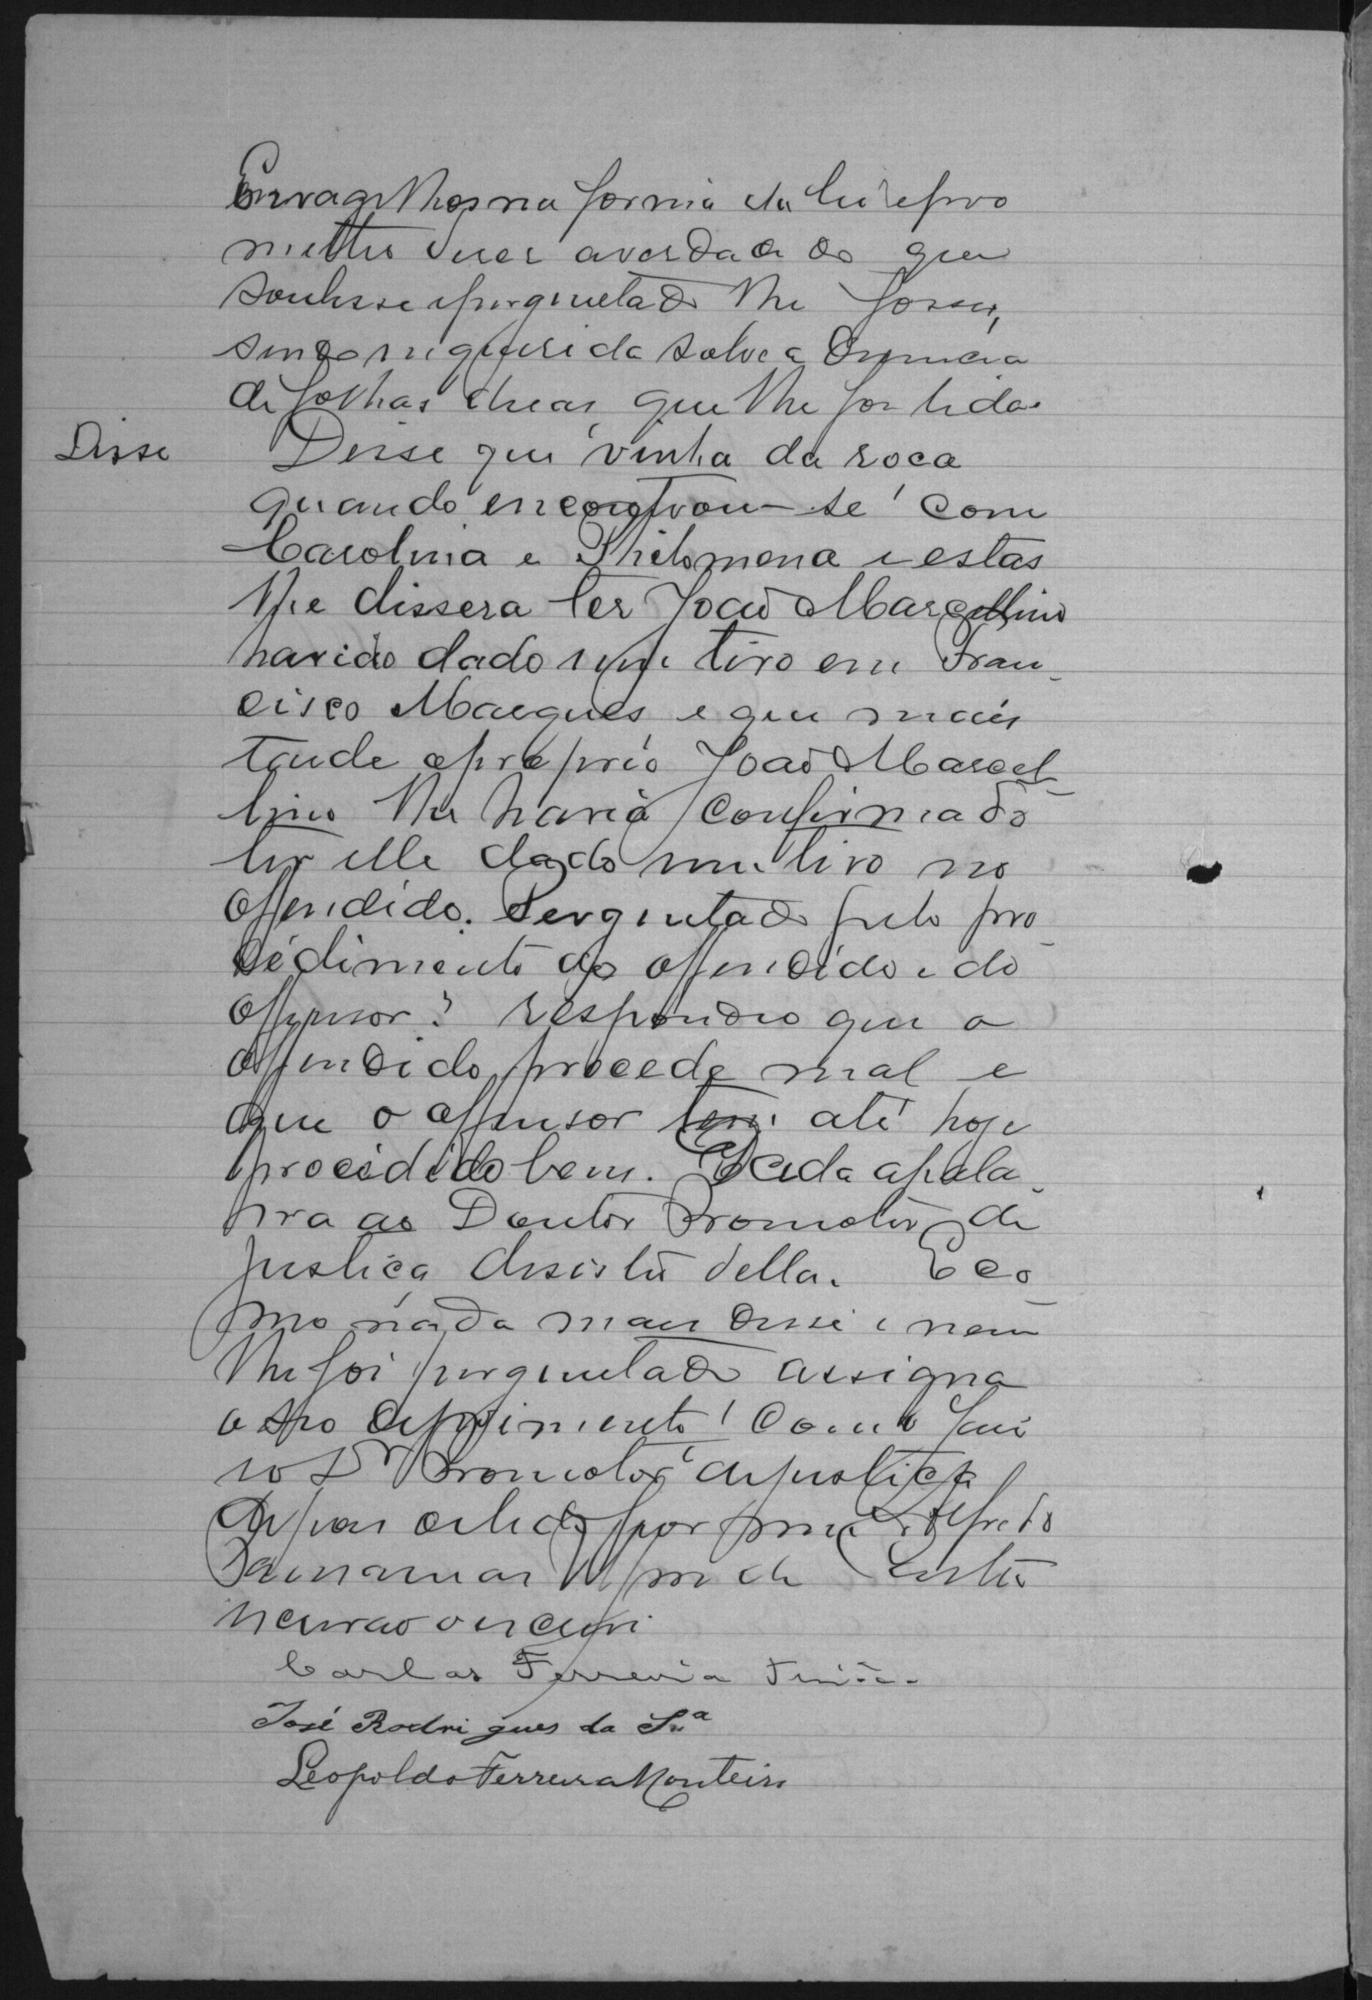 Evangelhos na forma da lei e pro
metteu dizer a verdade do que
soubesse e perguntado lhe fosse,
sendo inquerida sobre a denuncia
de folhas duas, que lhe foi lida.
Disse
Disse que vinha da roca
quando encontrou-se com
Carolina e Philomena e estas
lhe dissera ter João Marcellino
havido dado um tiro em Fran-
cisco Marques e que mais
tarde o proprio João Marcel-
lino lhe havia confirmado
ter elle dado um tiro no
offendido. Perguntado pelo pro-
cedimento do offendido e do
offensor? respondeo que o
offendido procede mal e
que o offensor tem até hoje
procedido bem. Dada a pala-
vra ao Doutor Promotor de
justiça desistiu della. E co-
mo nada mais disse e nem
lhe foi perguntado assigna
o seo depoimento com o Jui
e o Dr Promotor de justiça
depois de lido por mim Alfredo
escrivão o escrevi
Carlos Ferreira
José Rodrigues da Sa
Leopoldo Ferreira Monteiro